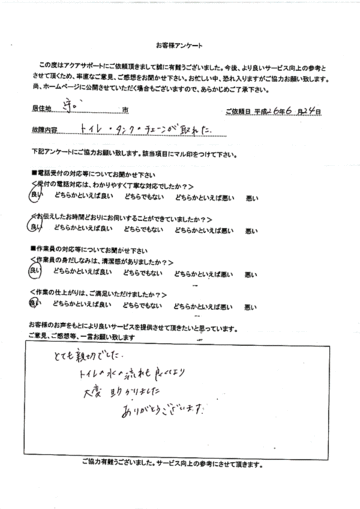 お客様アンケート
この度はアクアサポートにご依頼頂きまして誠に有難うございました。今後、より良いサービス向上の参考と
させて頂くため、率直なご意見、ご感想をお聞かせ下さい。お忙しい中、恐れ入りますがご協力お願い致します。
尚、ホームページに公開させていただく場合もございますので、あらかじめご了承下さい。
居住地 守口 市 ご依頼日 平成26年6月24日
故障内容 トイレ・タンク・チェーンが取れた
下記アンケートにご協力お願い致します。該当項目にマル印をつけて下さい。
■電話受付の対応等についてお聞かせ下さい
<受付の電話対応は、わかりやすく丁寧な対応でしたか?>
良い どちらかといえば良い どちらでもない どちらかといえば悪い 悪い
<お伝えしたお時間どおりにお伺いすることができていましたか?>
良い どちらかといえば良い どちらでもない どちらかといえば悪い 悪い
■作業員の対応等についてお聞かせ下さい
<作業員の身だしなみは、清潔感がありましたか?>
良い どちらかといえば良い どちらでもない どちらかといえば悪い 悪い
<作業の仕上がりは、ご満足いただけましたか?>
良い どちらかといえば良い どちらでもない どちらかといえば悪い 悪い
お客様のお声をもとにより良いサービスを提供させて頂きたいと思っています。
ご意見、ご感想等、一言お願い致します
とても親切でした
トイレの水の流れも良くなり
大変助かりました
ありがとうございます
ご協力有難うございました。サービス向上の参考にさせて頂きます。